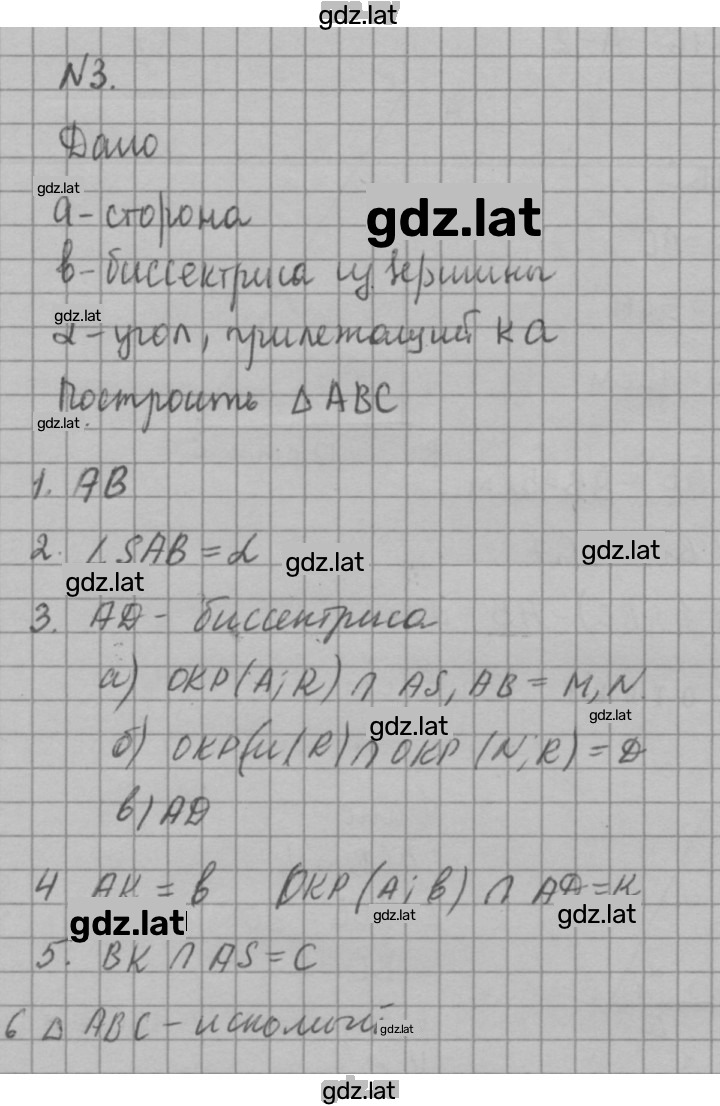 gdz.lat
N3.
Дано
gdz.lat
a - сторона
gdz.lat
b - биссектриса из вершины
gdz.lat
α - угол, прилежащий к a
Построить △ ABC
gdz.lat
1. AB
2. ∠SAB = α
gdz.lat
gdz.lat
gdz.lat
3. AD - биссектриса
а) ОКР(A; R) ∩ AS, AB = M, N.
gdz.lat
gdz.lat
б) ОКР(M; R) ∩ ОКР (N; R) = D
в) AD
4 AK = b ОКР(A; b) ∩ AD = K
gdz.lat
gdz.lat
gdz.lat
5. BK ∩ AS = C
6 △ ABC - искомый
gdz.lat
gdz.lat